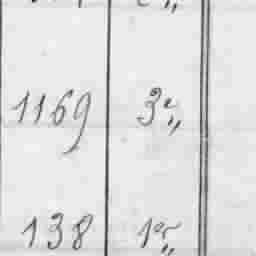 1169 3e„
138 1er„